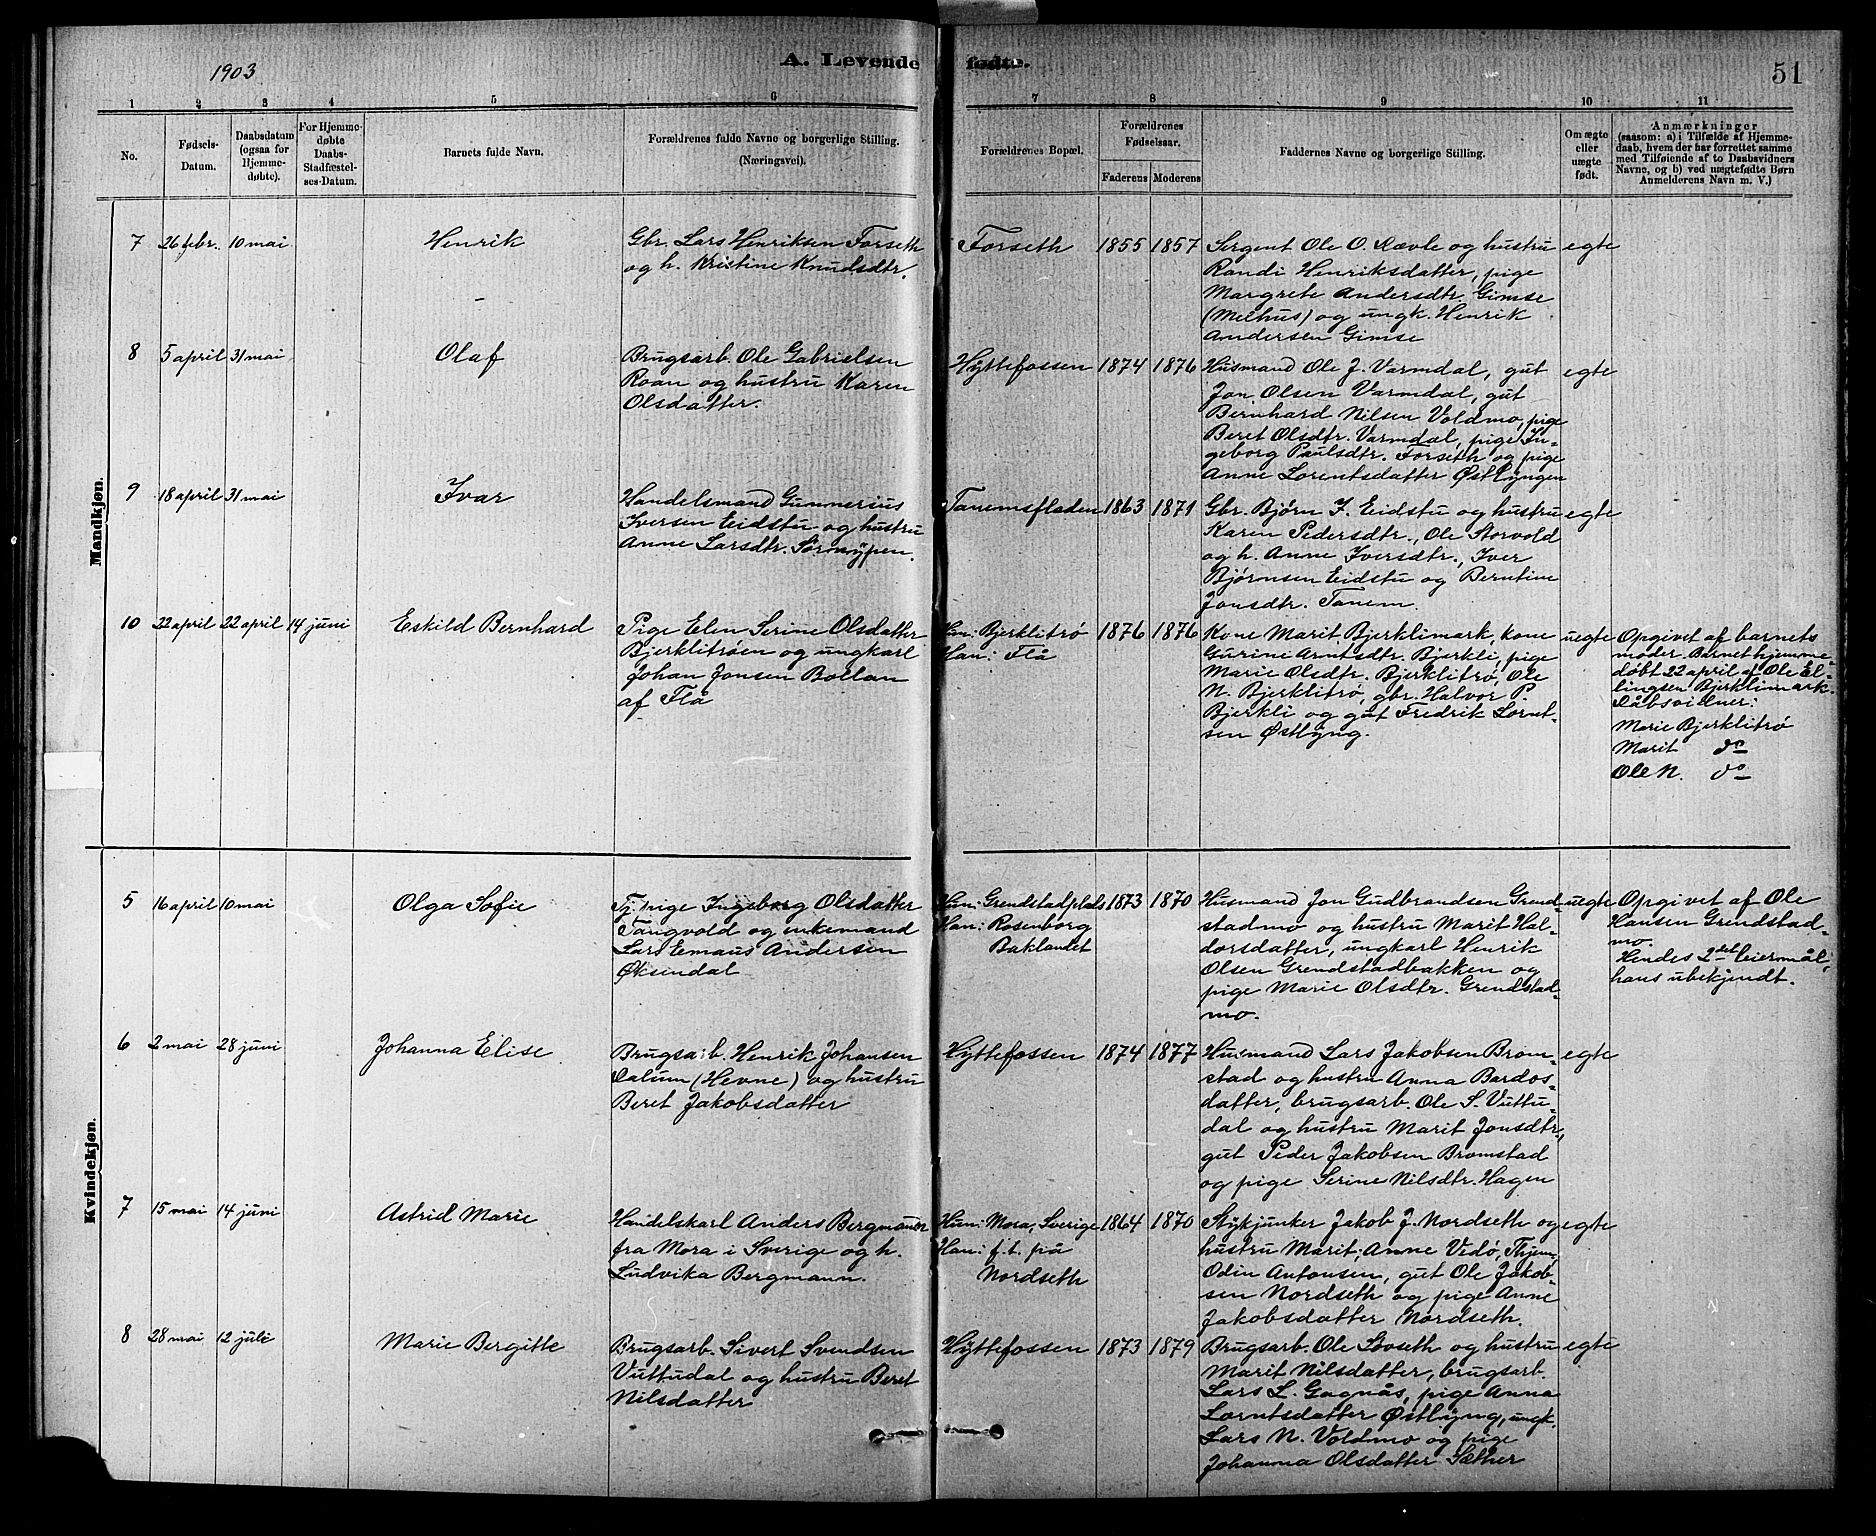 1903
A. Levende fødte.
51
1 2 3 4 5 6 7 8 9 10 11
No.
Fødsels-
Datum.
Daabsdatum
(ogsaa for
Hjemme-
døbte).
For Hjemme-
døbte
Daabs-
Stadfæstel-
ses-Datum.
Barnets fulde Navn.
Forældrenes fulde Navne og borgerlige Stilling.
(Næringsvei).
Forældrenes Bopæl.
Forældrenes
Fødselsaar.
Faderens Moderens
Faddernes Navne og borgerlige Stilling.
Om ægte
eller
uægte
født.
Anmærkninger
(saasom: a) i Tilfælde af Hjemme-
daab, hvem der har forrettet samme
med Tilføiende af to Daabsvidners
Navne, og b) ved uægtefødte Børn
Anmelderens Navn m. V.)
Mandkjøn.
7 26 febr. 10 mai
Henrik
Gbr. Lars Henriksen Forseth
og h. Kristine Knudsdtr.
Forseth 1855 1857
Sergent Ole O. Rævle og hustru
Randi Henriksdatter, pige
Margrete Andersdtr. Gimse
(Melhus) og ungk. Henrik
Andersen Gimse
egte
8 5 april 31 mai
Olaf
Brugsarb. Ole Gabrielsen
Roan og hustru Karen
Olsdatter.
Hyttefossen 1874 1876
Husmand Ole J. Varmdal, gut
Jon Olsen Varmdal, gut
Bernhard Nilsen Voldmo, pige
Beret Olsdtr. Varmdal, pige In-
geborg Paulsdtr. Forseth og pige
Anne Lorentsdatter Østlyngen
egte
9 18 april 31 mai
Ivar
Handelsmand Gunnerius
Iversen Eidstu og hustru
Anne Larsdtr. Sørnypen.
Tanemsfladen 1863 1871
Gbr. Bjørn I. Eidstu og hustru
Karen Pedersdtr., Ole Storvold
og h. Anne Iversdtr., Iver
Bjørnsen Eidstu og Berntine
Jonsdtr. Tanem.
egte
10 22 april 22 april 14 juni
Eskild Bernhard
Pige Elen Serine Olsdatter
Bjerklitrøen og ungkarl
Johan Jonsen Bollan
af Flå
Hun: Bjerklitrø
Han: Flå
1876 1876
Kone Marit Bjerklimark, kone
Gurine Arntsdtr. Bjerkli, pige
Marie Olsdtr. Bjerklitrø, Ole
N. Bjerklitrø, gbr. Halvor P.
Bjerkli og gut Fredrik Lornt-
sen Østlyng.
uegte
Opgivet af barnets
moder. Barnet hjemme-
døbt 22 april af Ole El-
lingsen Bjerklimark.
Dåbsvidner:
Marie Bjerklitrø
Marit do
Ole N. do
Kvindekjøn.
5 16 april 10 mai
Olga Sofie
Tj. pige Ingeborg Olsdatter
Tangvold og enkemand
Lars Emaus Andersen
Øksendal
Hun: Grendstadplads
Han: Rosenborg
Baklandet
1873 1870
Husmand Jon Gudbrandsen Grend-
stadmo og hustru Marit Hal-
dorsdatter, ungkarl Henrik
Olsen Grendstadbakken og
pige Marie Olsdtr. Grendstad-
mo.
uegte
Opgivet af Ole
Hansen Grendstad-
mo.
Hendes 2det leiermål,
hans ubekjendt.
6 2 mai 28 juni
Johanna Elise
Brugsarb. Henrik Johansen
Dalum (Hevne) og hustru
Beret Jakobsdatter
Hyttefossen 1874 1877
Husmand Lars Jakobsen Brom-
stad og hustru Anna Bardos-
datter, brugsarb. Ole S. Vuttu-
dal og hustru Marit Jonsdtr.,
gut Peder Jakobsen Bromstad
og pige Serine Nilsdtr. Hagen
egte
7 15 mai 14 juni
Astrid Marie
Handelskarl Anders Bergmann
fra Mora i Sverige og h.
Ludvika Bergmann.
Hun: Mora, Sverige
Han: f. t. på
Nordseth
1864 1870
Stykjunker Jakob J. Nordseth og
hustru Marit; Anne Vedø, Thjem,
Odin Antonsen, gut Ole Jakob-
sen Nordseth og pige Anne
Jakobsdatter Nordseth.
egte
8 28 mai 12 juli
Marie Bergitte
Brugsarb. Sivert Svendsen
Vuttudal og hustru Beret
Nilsdatter
Hyttefossen 1873 1879
Brugsarb. Ole Sovseth og hustru
Marit Nilsdatter, brugsarb.
Lars L. Gagnås, pige Anna
Lorntsdatter Østlyng, ungk.
Lars N. Voldmo og pige
Johanna Olsdatter Sæther
egte